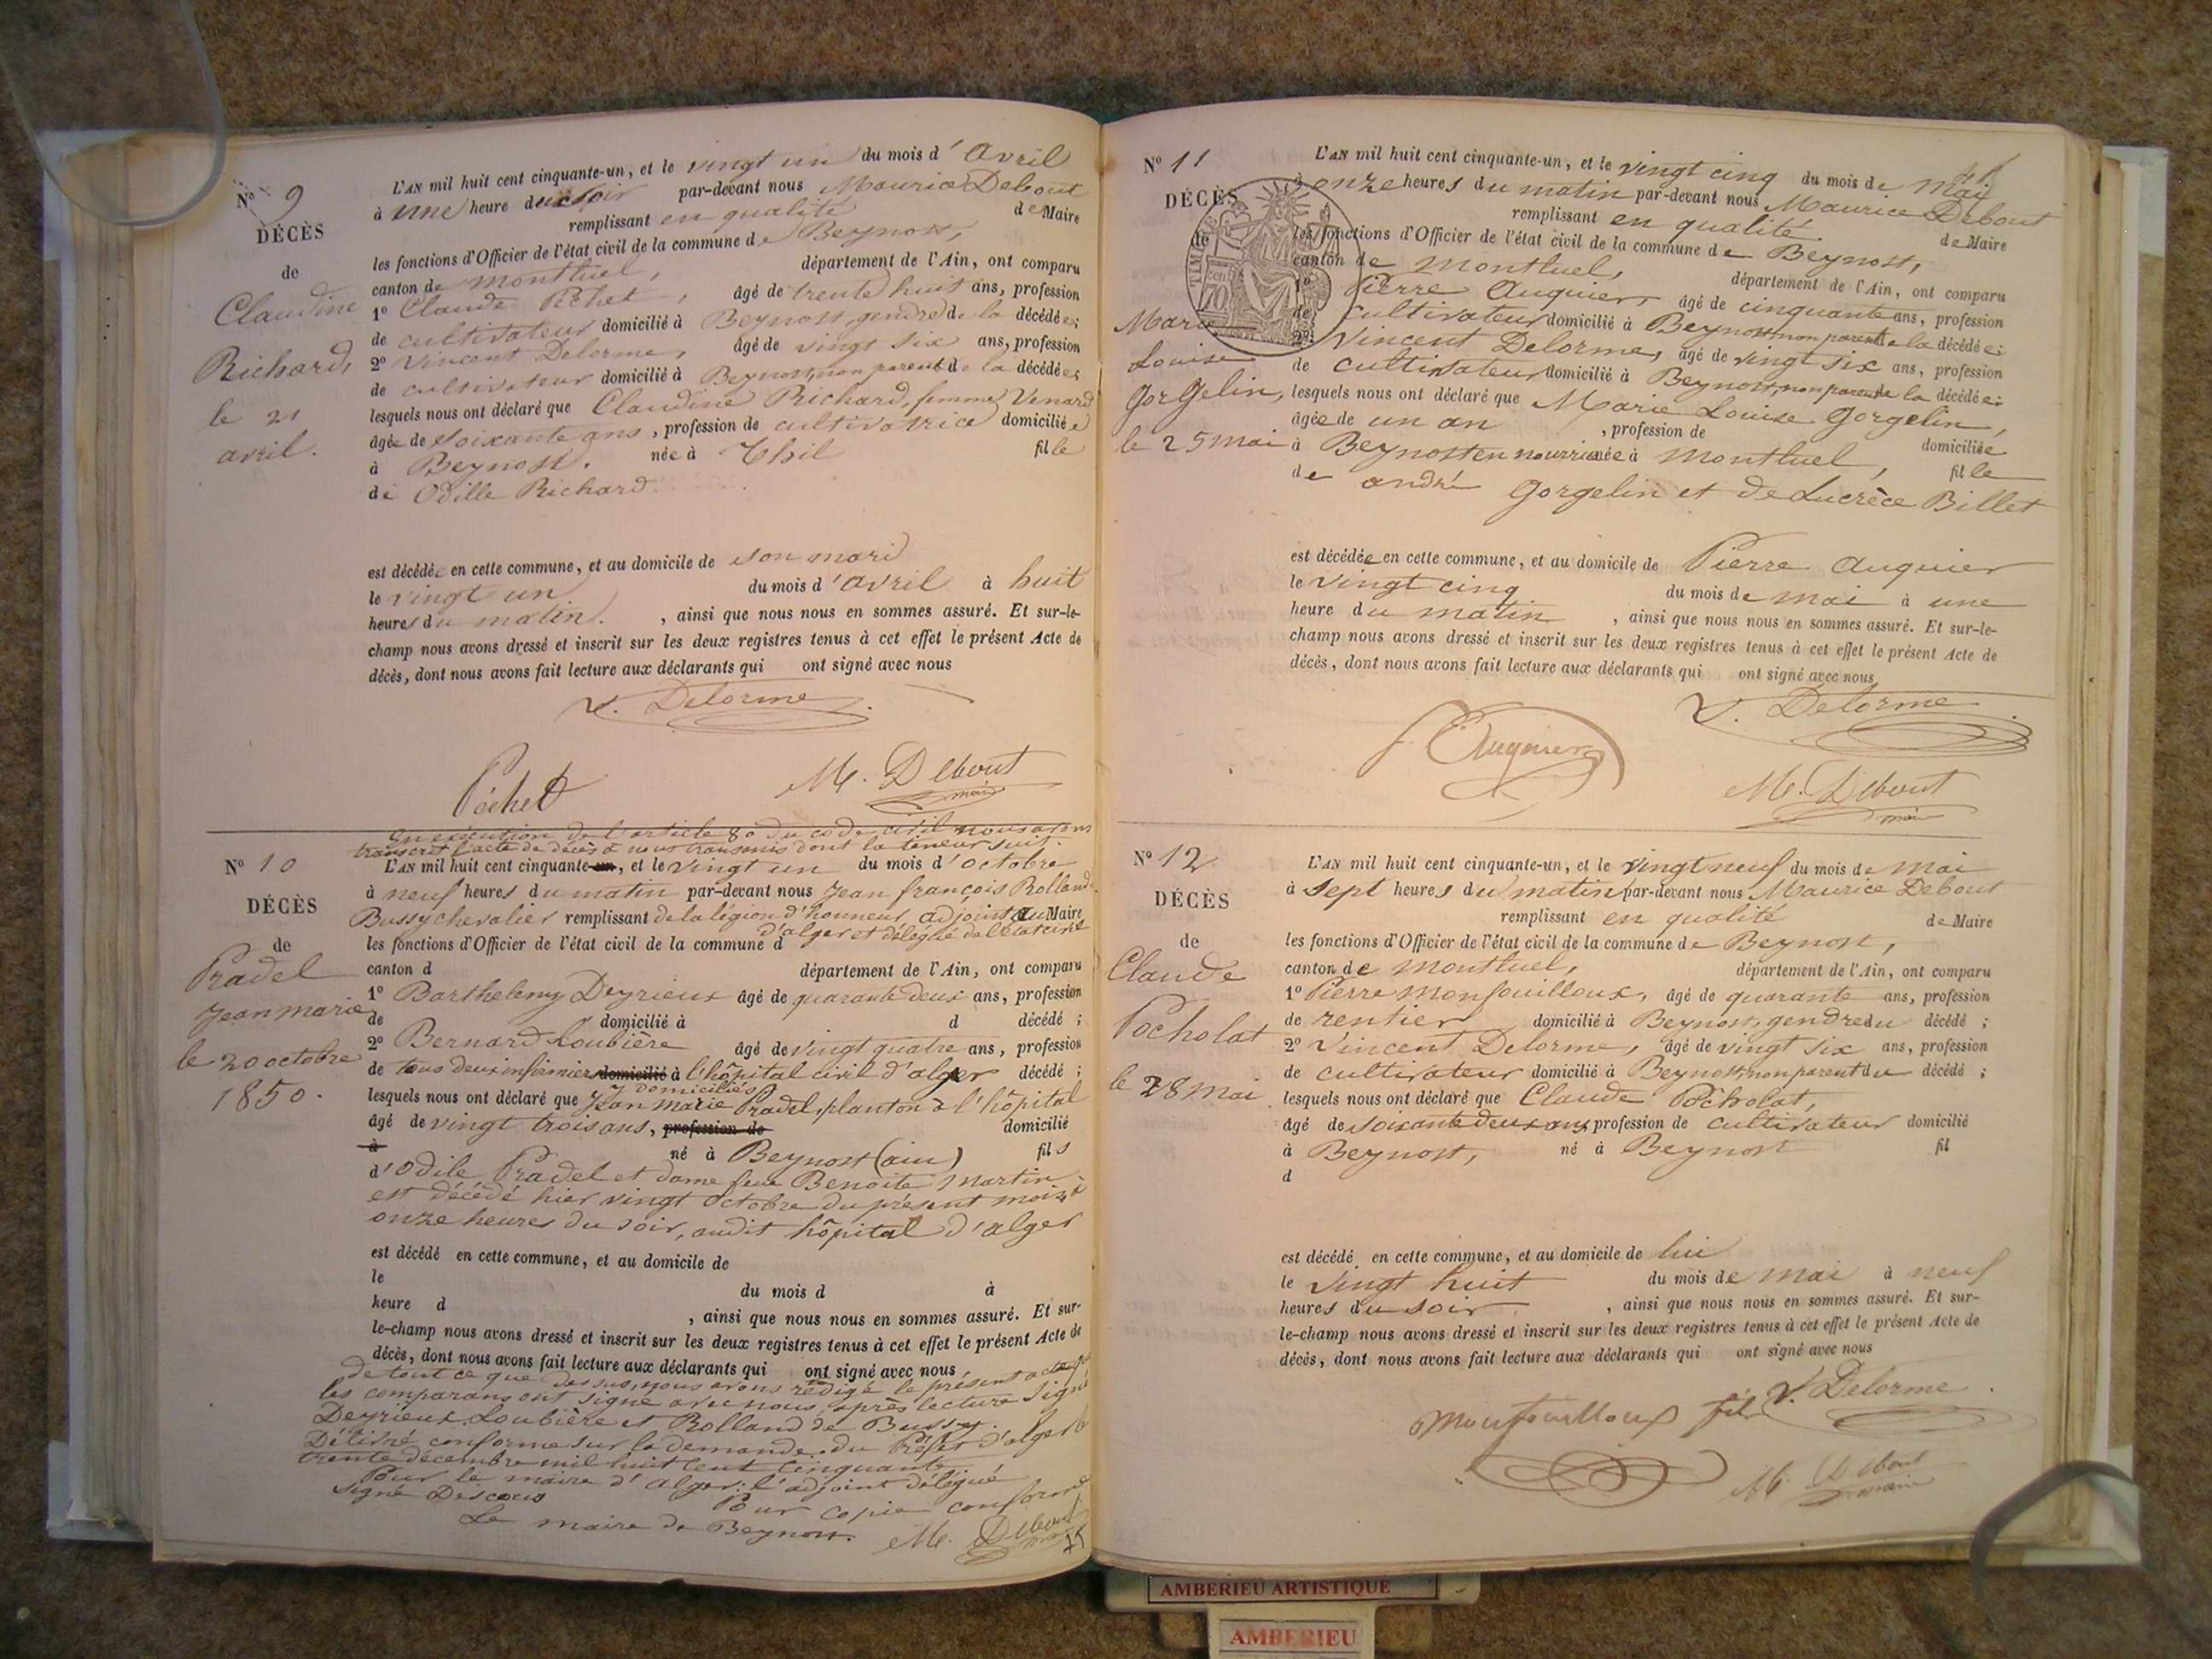 Nº 9
DÉCÈS
de
Claudine
Richard,
le 21
avril.
L'AN mil huit cent cinquante-un, et le vingt un du mois d'avril
à une heure du soir par-devant nous Maurice Debout
remplissant en qualité de Maire
les fonctions d'Officier de l'état civil de la commune de Beynost,
canton de Montluel, département de l'Ain, ont comparu
1º Claude Pôchet, âgé de trente huit ans, profession
de cultivateur domicilié à Beynost, gendre de la décédée;
2º Vincent Delorme, âgé de vingt six ans, profession
de cultivateur domicilié à Beynost, non parent de la décédée;
lesquels nous ont déclaré que Claudine Richard, femme Venard
âgée de soixante ans, profession de cultivatrice domiciliée
à Beynost. née à Thil fille
de Odille Richard
est décédée en cette commune, et au domicile de son mari
le vingt un du mois d'avril à huit
heures du matin. , ainsi que nous nous en sommes assuré. Et sur-le-
champ nous avons dressé et inscrit sur les deux registres tenus à cet effet le présent Acte de
décès, dont nous avons fait lecture aux déclarants qui ont signé avec nous
V. Delorme
Pôchet M. Debout
maire
En exécution de l'article 80 du code civil nous avons
transcrit l'acte de décès à nous transmis dont la teneur suit.
Nº 10
DÉCÈS
de
Pradel
Jean marie
le 20 octobre
1850.
L'AN mil huit cent cinquante-un, et le vingt un du mois d'octobre
à neuf heures du matin par-devant nous Jean françois Rolland
Bussy chevalier remplissant de la légion d'honneur, adjoint au Maire
d'alger et délégué de l'état civil
les fonctions d'Officier de l'état civil de la commune d
canton d département de l'Ain, ont comparu
1º Barthelemy Deyrieux âgé de quarante deux ans, profession
de domicilié à d décédé;
2º Bernard Loubière âgé de vingt quatre ans, profession
de tous deux infirmiers domicilié à l'hôpital civil d'alger décédé;
y domiciliés
lesquels nous ont déclaré que Jean Marie Pradel, planton à l'hôpital
âgé de vingt trois ans, profession de domicilié
à né à Beynost (ain) fils
d'Odile Pradel et dame feue Benoite Martin
est décédé hier vingt octobre du présent mois, à
onze heures du soir, audit hôpital d'alger
est décédé en cette commune, et au domicile de
le du mois d à
heure d , ainsi que nous nous en sommes assuré. Et sur-
le-champ nous avons dressé et inscrit sur les deux registres tenus à cet effet le présent Acte de
décès, dont nous avons fait lecture aux déclarants qui ont signé avec nous,
de tout ce que dessus, nous avons rédigé le présent acte que
les comparans ont signé avec nous, après lecture signé
Deyrieux, Loubière et Rolland de Bussy.
Délivré conforme sur la demande du Préfet d'alger le
trente décembre mil huit cent cinquante.
Pour le maire d'alger: l'adjoint délégué
signé Descous
Pour copie conforme
Le maire de Beynost. M. Debout
maire
Nº 11
DÉCÈS
de
Marie
Louise
Gorgelin,
le 25 mai
TIMBRE
70 cen
L'AN mil huit cent cinquante-un, et le vingt cinq du mois de mai
à onze heures du matin par-devant nous Maurice Debout
remplissant en qualité de Maire
les fonctions d'Officier de l'état civil de la commune de Beynost,
canton de Montluel, département de l'Ain, ont comparu
1º Pierre Auquier, âgé de cinquante ans, profession
de cultivateur domicilié à Beynost, non parent de la décédée;
2º Vincent Delorme, âgé de vingt six ans, profession
de cultivateur domicilié à Beynost, non parent de la décédée;
lesquels nous ont déclaré que Marie Louise Gorgelin,
âgée de un an , profession de domiciliée
à Beynost en nourrice née à Montluel, fille
de andré Gorgelin et de Lucrèce Billet
est décédée en cette commune, et au domicile de Pierre Auquier
le vingt cinq du mois de mai à une
heure du matin , ainsi que nous nous en sommes assuré. Et sur-le-
champ nous avons dressé et inscrit sur les deux registres tenus à cet effet le présent Acte de
décès, dont nous avons fait lecture aux déclarants qui ont signé avec nous
V. Delorme
Auquier
M. Debout
maire
Nº 12
DÉCÈS
de
Claude
Pôcholat
le 28 mai
L'AN mil huit cent cinquante-un, et le vingt neuf du mois de mai
à sept heures du matin par-devant nous Maurice Debout
remplissant en qualité de Maire
les fonctions d'Officier de l'état civil de la commune de Beynost,
canton de Montluel, département de l'Ain, ont comparu
1º Pierre Monfouilloux, âgé de quarante ans, profession
de rentier domicilié à Beynost, gendre du décédé;
2º Vincent Delorme, âgé de vingt six ans, profession
de cultivateur domicilié à Beynost, non parent du décédé;
lesquels nous ont déclaré que Claude Pôcholat,
âgé de soixante deux ans profession de cultivateur domicilié
à Beynost, né à Beynost fil
d
est décédé en cette commune, et au domicile de lui
le vingt huit du mois de mai à neuf
heures du soir , ainsi que nous nous en sommes assuré. Et sur-
le-champ nous avons dressé et inscrit sur les deux registres tenus à cet effet le présent Acte de
décès, dont nous avons fait lecture aux déclarants qui ont signé avec nous
Monfouilloux fils V. Delorme
M. Debout
maire
AMBERIEU ARTISTIQUE
AMBERIEU